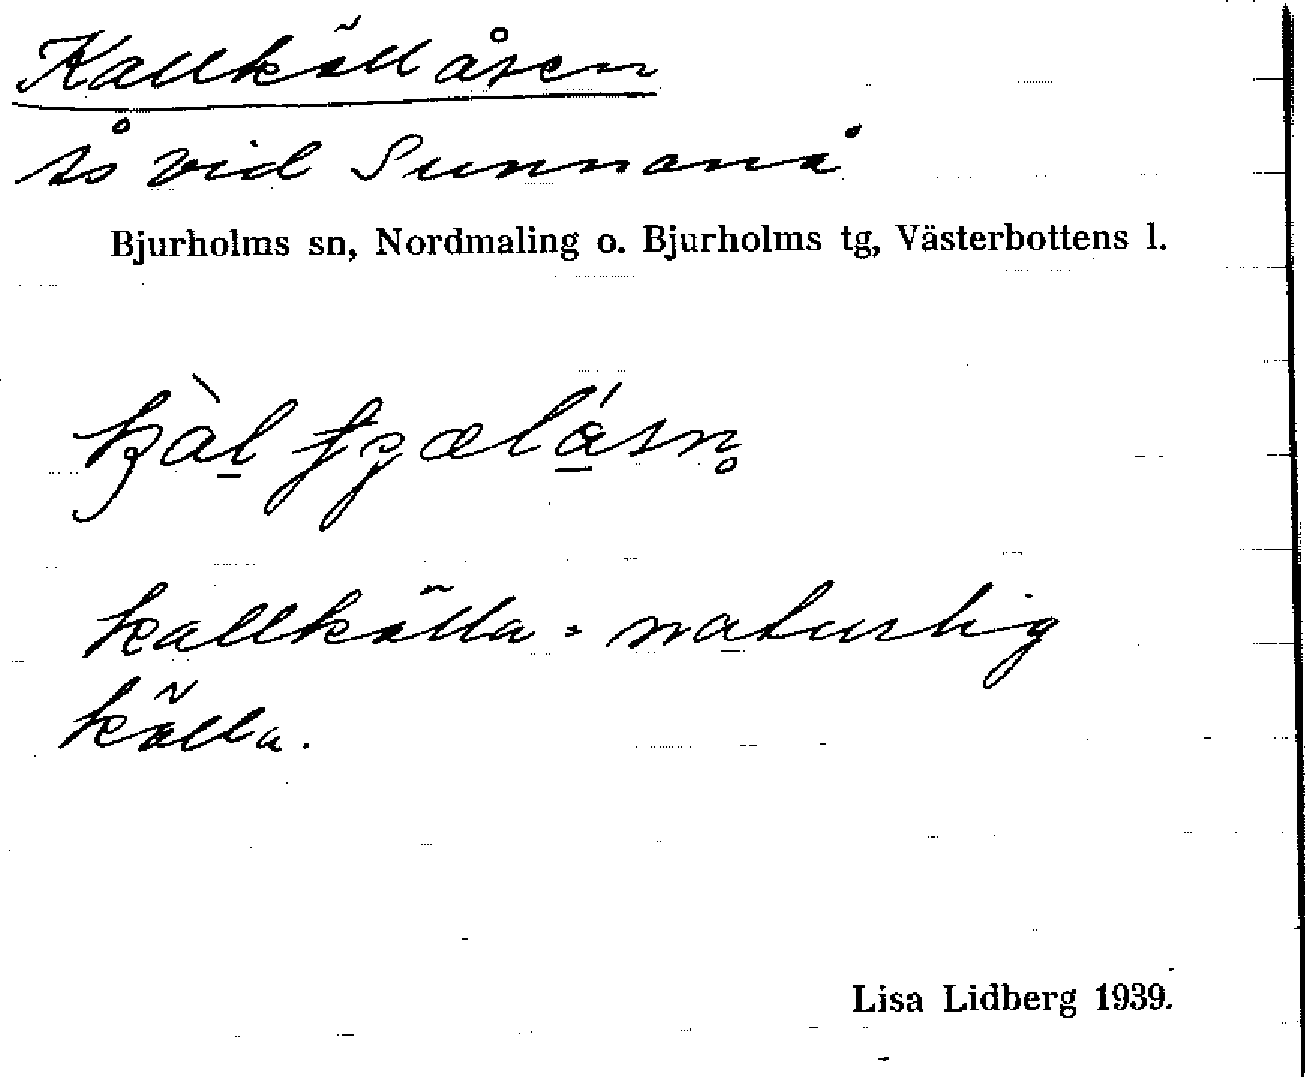 Kallkällåsen
ås vid Sunnanå
Bjurholms sn, Nordmaling o. Bjurholms tg, Västerbottens l.
kallkälla = naturlig
källa.
Lisa Lidberg 1939.